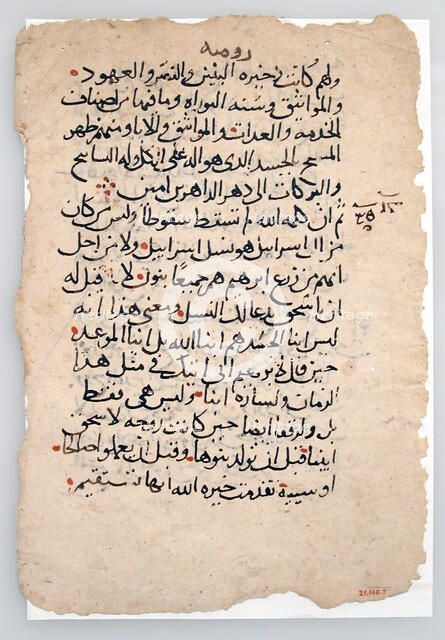 رومية
ولهم كانت ذخيره البنين والتمر والعهود
والمواثيق وسنه التوراه وما فيها من اصناف
الخدمه والعدات والمواثيق والابا ومنهم ظهر
المسيح بالجسد الذى هو اله على الكل وله التسابيح
والبركات الى دهر الداهرين امين
ثم ان كلمه الله لم تسقط سقوطا وليس من كان
من ال اسراييل هو نسل اسراييل ولا من اجل
انهم من زرع ابرهيم هم جميعا بنون لانه قيل له
ان باسحق يدعا لك النسل ومعنى هذا انه
ليس ابنا الجسد هم ابنا الله بل ابنا الموعد
حين قال لابرهيم انى اتيك فى مثل هذا
الزمان ولساره ابنا وليس هى فقط
بل ولرفقا ايضا حين كانت زوجه لاسحق
ابينا قبل ان تولد بنوها وقبل ان يعملوا صالحا
او سيية تقدمت خيره الله انها تستقيم
21.148.7